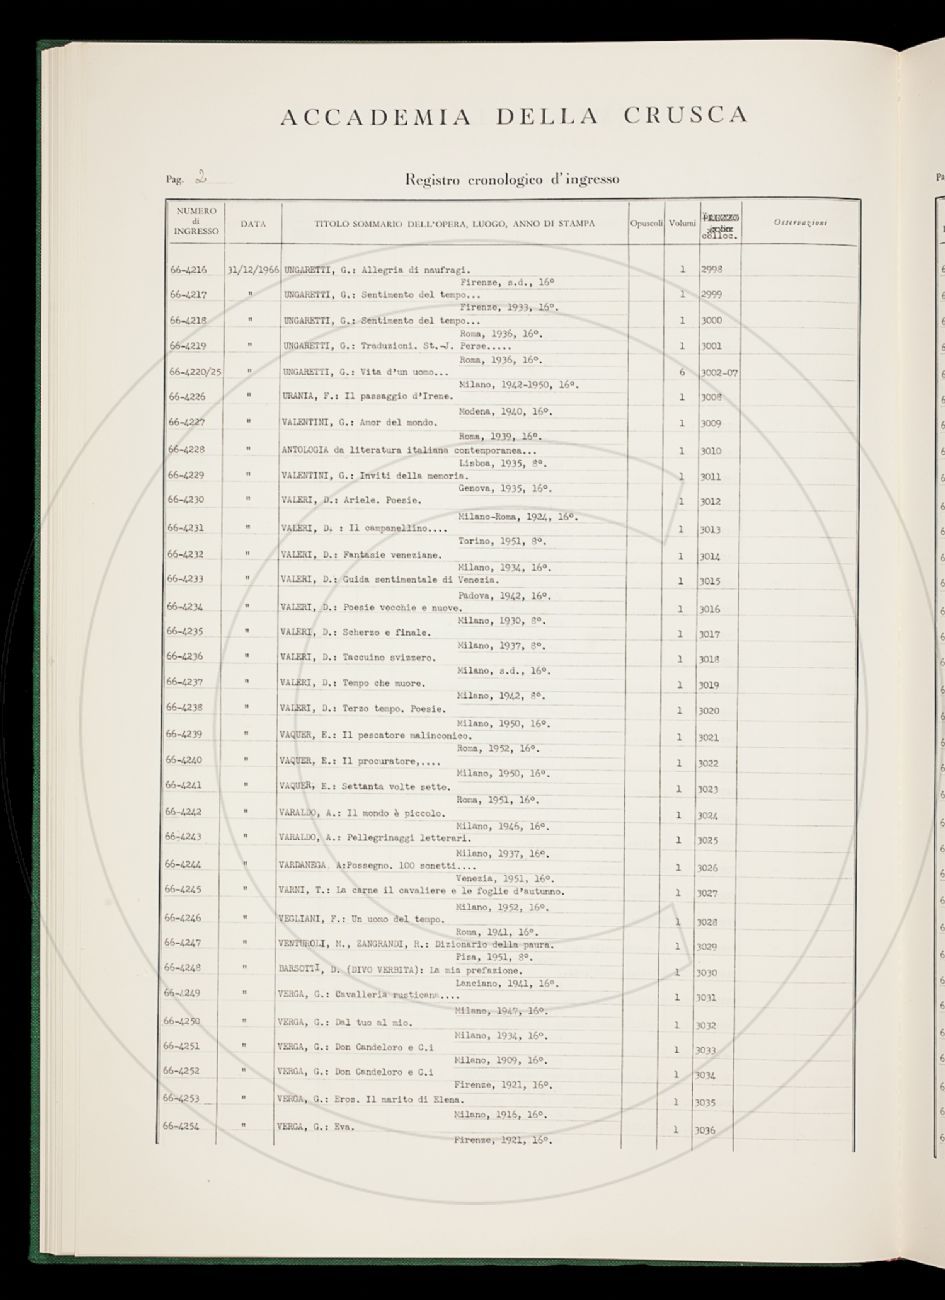 ACCADEMIA DELLA CRUSCA
Pag. 2 Registro cronologico d'ingresso
NUMERO di INGRESSO DATA TITOLO SOMMARIO DELL'OPERA, LUOGO, ANNO DI STAMPA Opuscoli Volumi colloc. Osservazioni
66-4216 31/12/1966 UNGARETTI, G.: Allegria di naufragi. 1 2998
Firenze, s.d., 16º
66-4217 " UNGARETTI, G.: Sentimento del tempo... 1 2999
Firenze, 1933, 16º.
66-4218 " UNGARETTI, G.: Sentimento del tempo... 1 3000
Roma, 1936, 16º.
66-4219 " UNGARETTI, G.: Traduzioni. St.-J. Perse..... 1 3001
Roma, 1936, 16º.
66-4220/25 " UNGARETTI, G.: Vita d'un uomo... 6 3002-07
Milano, 1942-1950, 16º.
66-4226 " URANIA, F.: Il passaggio d'Irene. 1 3008
Modena, 1940, 16º.
66-4227 " VALENTINI, G.: Amor del mondo. 1 3009
Roma, 1939, 16º.
66-4228 " ANTOLOGIA da literatura italiana contemporanea... 1 3010
Lisboa, 1935, 8º.
66-4229 " VALENTINI, G.: Inviti della memoria. 1 3011
Genova, 1935, 16º.
66-4230 " VALERI, D.: Ariele. Poesie. 1 3012
Milano-Roma, 1924, 16º.
66-4231 " VALERI, D. : Il campanellino.... 1 3013
Torino, 1951, 8º.
66-4232 " VALERI, D.: Fantasie veneziane. 1 3014
Milano, 1934, 16º.
66-4233 " VALERI, D.: Guida sentimentale di Venezia. 1 3015
Padova, 1942, 16º.
66-4234 " VALERI, D.: Poesie vecchie e nuove. 1 3016
Milano, 1930, 8º.
66-4235 " VALERI, D.: Scherzo e finale. 1 3017
Milano, 1937, 8º.
66-4236 " VALERI, D.: Taccuino svizzero. 1 3018
Milano, s.d., 16º.
66-4237 " VALERI, D.: Tempo che muore. 1 3019
Milano, 1942, 8º.
66-4238 " VALERI, D.: Terzo tempo. Poesie. 1 3020
Milano, 1950, 16º.
66-4239 " VAQUER, E.: Il pescatore malinconico. 1 3021
Roma, 1952, 16º.
66-4240 " VAQUER, E.: Il procuratore,.... 1 3022
Milano, 1950, 16º.
66-4241 " VAQUER, E.: Settanta volte sette. 1 3023
Roma, 1951, 16º.
66-4242 " VARALDO, A.: Il mondo è piccolo. 1 3024
Milano, 1946, 16º.
66-4243 " VARALDO, A.: Pellegrinaggi letterari. 1 3025
Milano, 1937, 16º.
66-4244 " VARDANEGA, A:Possegno. 100 sonetti.... 1 3026
Venezia, 1951, 16º.
66-4245 " VARNI, T.: La carne il cavaliere e le foglie d'autunno. 1 3027
Milano, 1952, 16º.
66-4246 " VEGLIANI, F.: Un uomo del tempo. 1 3028
Roma, 1941, 16º.
66-4247 " VENTUROLI, M., ZANGRANDI, R.: Dizionario della paura. 1 3029
Pisa, 1951, 8º.
66-4248 " BARSOTTI, D. (DIVO VERBITA): La mia prefazione. 1 3030
Lanciano, 1941, 16º.
66-4249 " VERGA, G.: Cavalleria rusticana.... 1 3031
Milano, 1947, 16º.
66-4250 " VERGA, G.: Dal tuo al mio. 1 3032
Milano, 1934, 16º.
66-4251 " VERGA, G.: Don Candeloro e C.i 1 3033
Milano, 1909, 16º.
66-4252 " VERGA, G.: Don Candeloro e C.i 1 3034
Firenze, 1921, 16º.
66-4253 " VERGA, G.: Eros. Il marito di Elena. 1 3035
Milano, 1916, 16º.
66-4254 " VERGA, G.: Eva. 1 3036
Firenze, 1921, 16º.